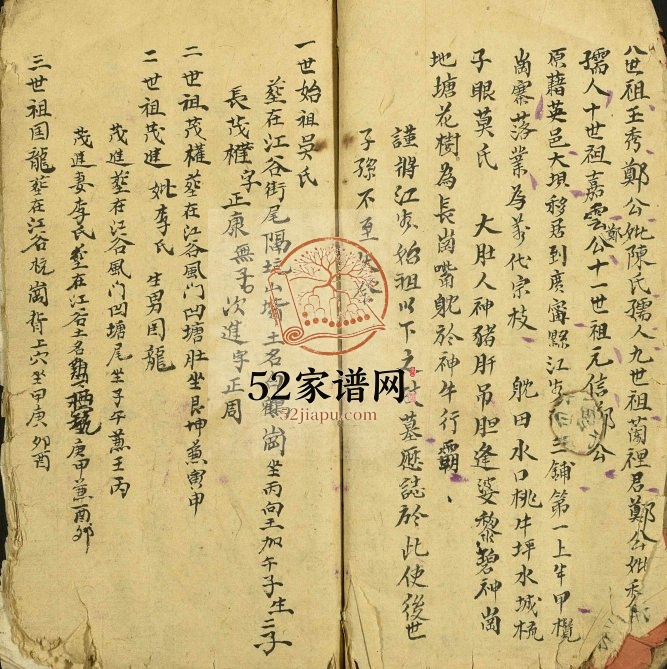 八世祖玉秀鄭公妣陳氏孺人九世祖蘭裡君鄭公妣
孺人十世祖嘉雲鄭公十一世祖元信鄭公
原藉英邑大埧移居到廣寧縣江谷 三舖第一上半甲欖
崗寨落業為萬代宗枝 躭田水口桃牛坪水城梳
子眼莫氏 大肚人神豬肝吊胆逢婆黎碧神崗
地塘花樹為長崗嘴躭於神牛行霸、
謹將江谷始祖以下之 墓歷誌於此使後世
子孫不至失
一世始祖吳氏
塟在江谷街尾 坑 土名 崗坐丙向壬加午子生二子
長茂權字正康無子次進字正周
二世祖茂權塟在江谷風门凹塘肚坐艮坤兼寅申
二世祖茂進妣李氏 生男国龍
茂進塟在江谷風门凹塘尾坐子午兼壬丙
茂進妻李氏塟在江谷土名 庚甲兼酉夘
三世祖国龍塟在江谷杬崗背上穴坐甲庚夘酉
52家谱网
52jiapu.com